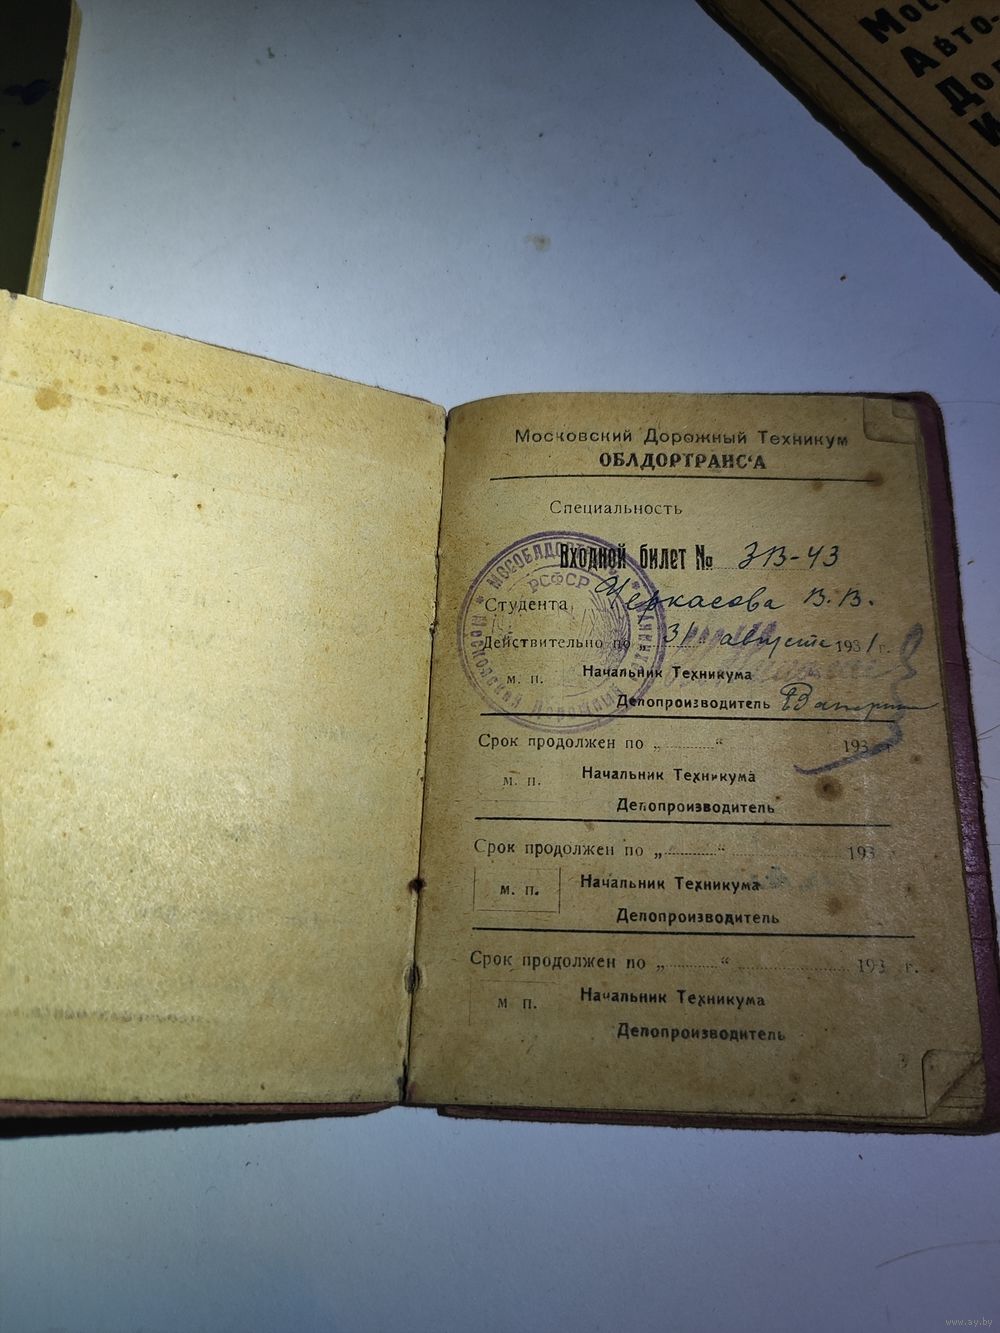 Московский Дорожный Техникум
ОБЛДОРТРАНС'А
Специальность
Входной билет № ЗВ-43
Студента Черкасова В. В.
Действительно по „31" августа 1931 г.
м. п. Начальник Техникума
Делопроизводитель
Срок продолжен по „ " 193 г.
м. п. Начальник Техникума
Делопроизводитель
Срок продолжен по „ " 193 г.
м. п. Начальник Техникума
Делопроизводитель
Срок продолжен по „ " 193 г.
м п. Начальник Техникума
Делопроизводитель
3
РСФСР
Московский Дорожный Техникум
Моск
Авто-
До
И
www.ay.by